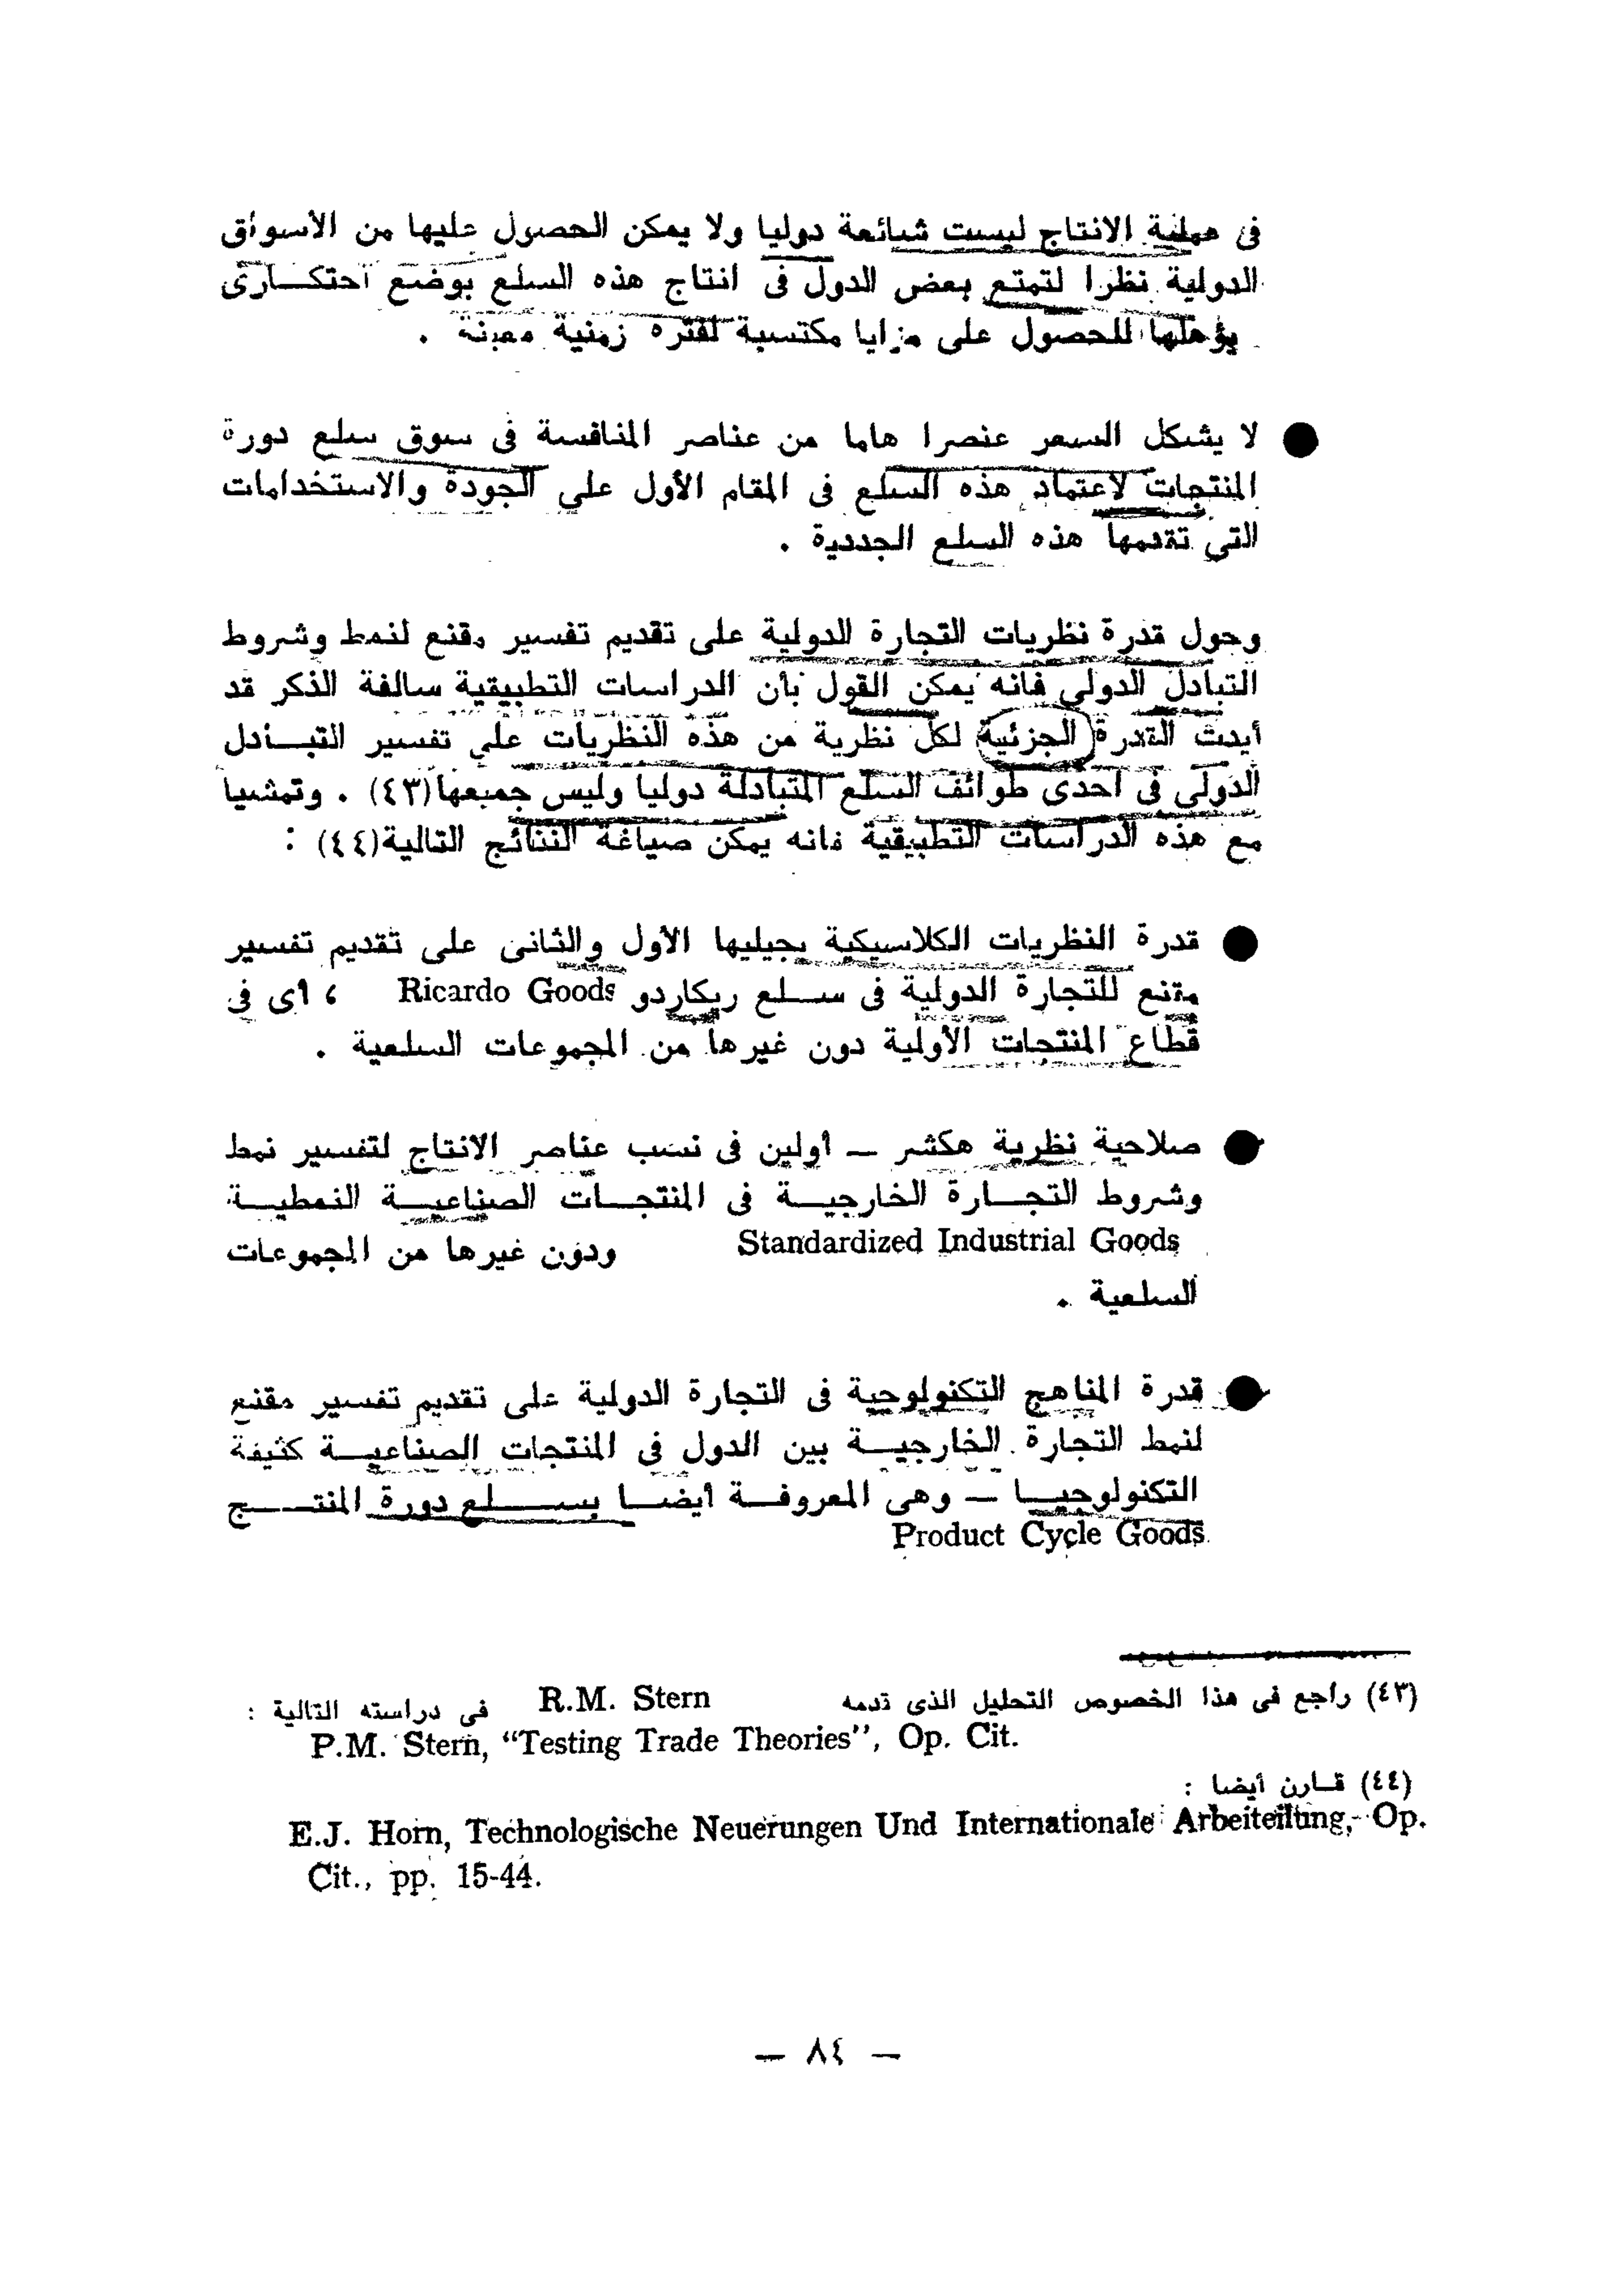 فى عملية الانتاج ليست شائعة دوليا ولا يمكن الحصول عليها من الأسواق
الدولية نظرا لتمتع بعض الدول فى انتاج هذه السلع بوضع احتكارى
يؤهلها للحصول على مزايا مكتسبة لفترة زمنية معينة .
● لا يشكل السعر عنصرا هاما من عناصر المنافسة فى سوق سلع دورة
المنتجات لاعتماد هذه السلع فى المقام الأول على الجودة والاستخدامات
التى تقدمها هذه السلع الجديدة .
وحول قدرة نظريات التجارة الدولية على تقديم تفسير مقنع لنمط وشروط
التبادل الدولى فانه يمكن القول بأن الدراسات التطبيقية سالفة الذكر قد
أيدت القدرة الجزئية لكل نظرية من هذه النظريات على تفسير التبادل
الدولى فى احدى طوائف السلع المتبادلة دوليا وليس جميعها(٤٣) . وتمشيا
مع هذه الدراسات التطبيقية فانه يمكن صياغة النتائج التالية(٤٤) :
● قدرة النظريات الكلاسيكية بجيليها الأول والثانى على تقديم تفسير
مقنع للتجارة الدولية فى سلع ريكاردو Ricardo Goods ، أى فى
قطاع المنتجات الأولية دون غيرها من المجموعات السلعية .
● صلاحية نظرية هكشر — أولين فى نسب عناصر الانتاج لتفسير نمط
وشروط التجارة الخارجية فى المنتجات الصناعية النمطية
Standardized Industrial Goods ودون غيرها من المجموعات
السلعية .
● قدرة المناهج التكنولوجية فى التجارة الدولية على تقديم تفسير مقنع
لنمط التجارة الخارجية بين الدول فى المنتجات الصناعية كثيفة
التكنولوجيا — وهى المعروفة أيضا بسلع دورة المنتج
Product Cycle Goods
(٤٣) راجع فى هذا الخصوص التحليل الذى قدمه R.M. Stern فى دراسته التالية :
P.M. Stern, “Testing Trade Theories”, Op. Cit.
(٤٤) قارن أيضا :
E.J. Horn, Technologische Neuerungen Und Internationale Arbeiteilung, Op.
Cit., pp. 15-44.
— ٨٤ —